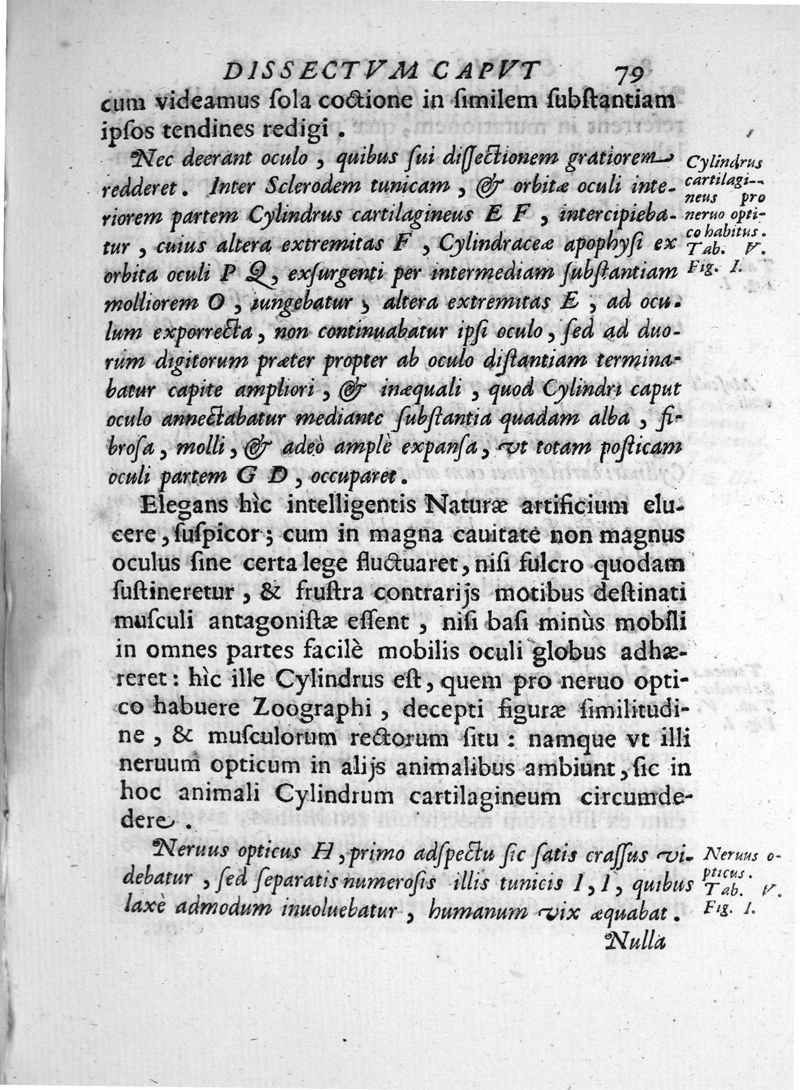 DISSECTVM CAPVT 79
cum videamus ſola coctione in ſimilem ſubſtantiam
ipſos tendines redigi .
Nec deerant oculo , quibus ſui diſſectionem gratiorem
redderet . Inter Sclerodem tunicam , & orbitæ oculi inte-
riorem partem Cylindrus cartilagineus E F , intercipieba-
tur , cuius altera extremitas F , Cylindraceæ apophyſi ex
orbita oculi P Q , exſurgenti per intermediam ſubſtantiam
molliorem O , iungebatur , altera extremitas E , ad ocu-
lum exporrecta , non continuabatur ipſi oculo , ſed ad duo-
rum digitorum præter propter ab oculo diſtantiam termina-
batur capite ampliori , & inæquali , quod Cylindri caput
oculo annectabatur mediante ſubſtantia quadam alba , fi-
broſa , molli , & adeò amplè expanſa , vt totam poſticam
oculi partem G D , occuparet .
Cylindrus
cartilagi-
neus pro
neruo opti-
co habitus .
Tab. V.
Fig. I.
Elegans hìc intelligentis Naturæ artificium elu-
cere , ſuſpicor ; cum in magna cauitate non magnus
oculus ſine certa lege fluctuaret , niſi fulcro quodam
ſuſtineretur , & fruſtra contrarijs motibus deſtinati
muſculi antagoniſtæ eſſent , niſi baſi minùs mobili
in omnes partes facilè mobilis oculi globus adhæ-
reret : hìc ille Cylindrus eſt , quem pro neruo opti-
co habuere Zoographi , decepti figuræ ſimilitudi-
ne , & muſculorum rectorum ſitu : namque vt illi
neruum opticum in alijs animalibus ambiunt , ſic in
hoc animali Cylindrum cartilagineum circumde-
dere .
Neruus opticus H , primo adſpectu ſic ſatis craſſus vi-
debatur , ſed ſeparatis numeroſis illis tunicis I , I , quibus
laxè admodum inuoluebatur , humanum vix æquabat .
Neruus o-
pticus .
Tab. V.
Fig. I.
Nulla